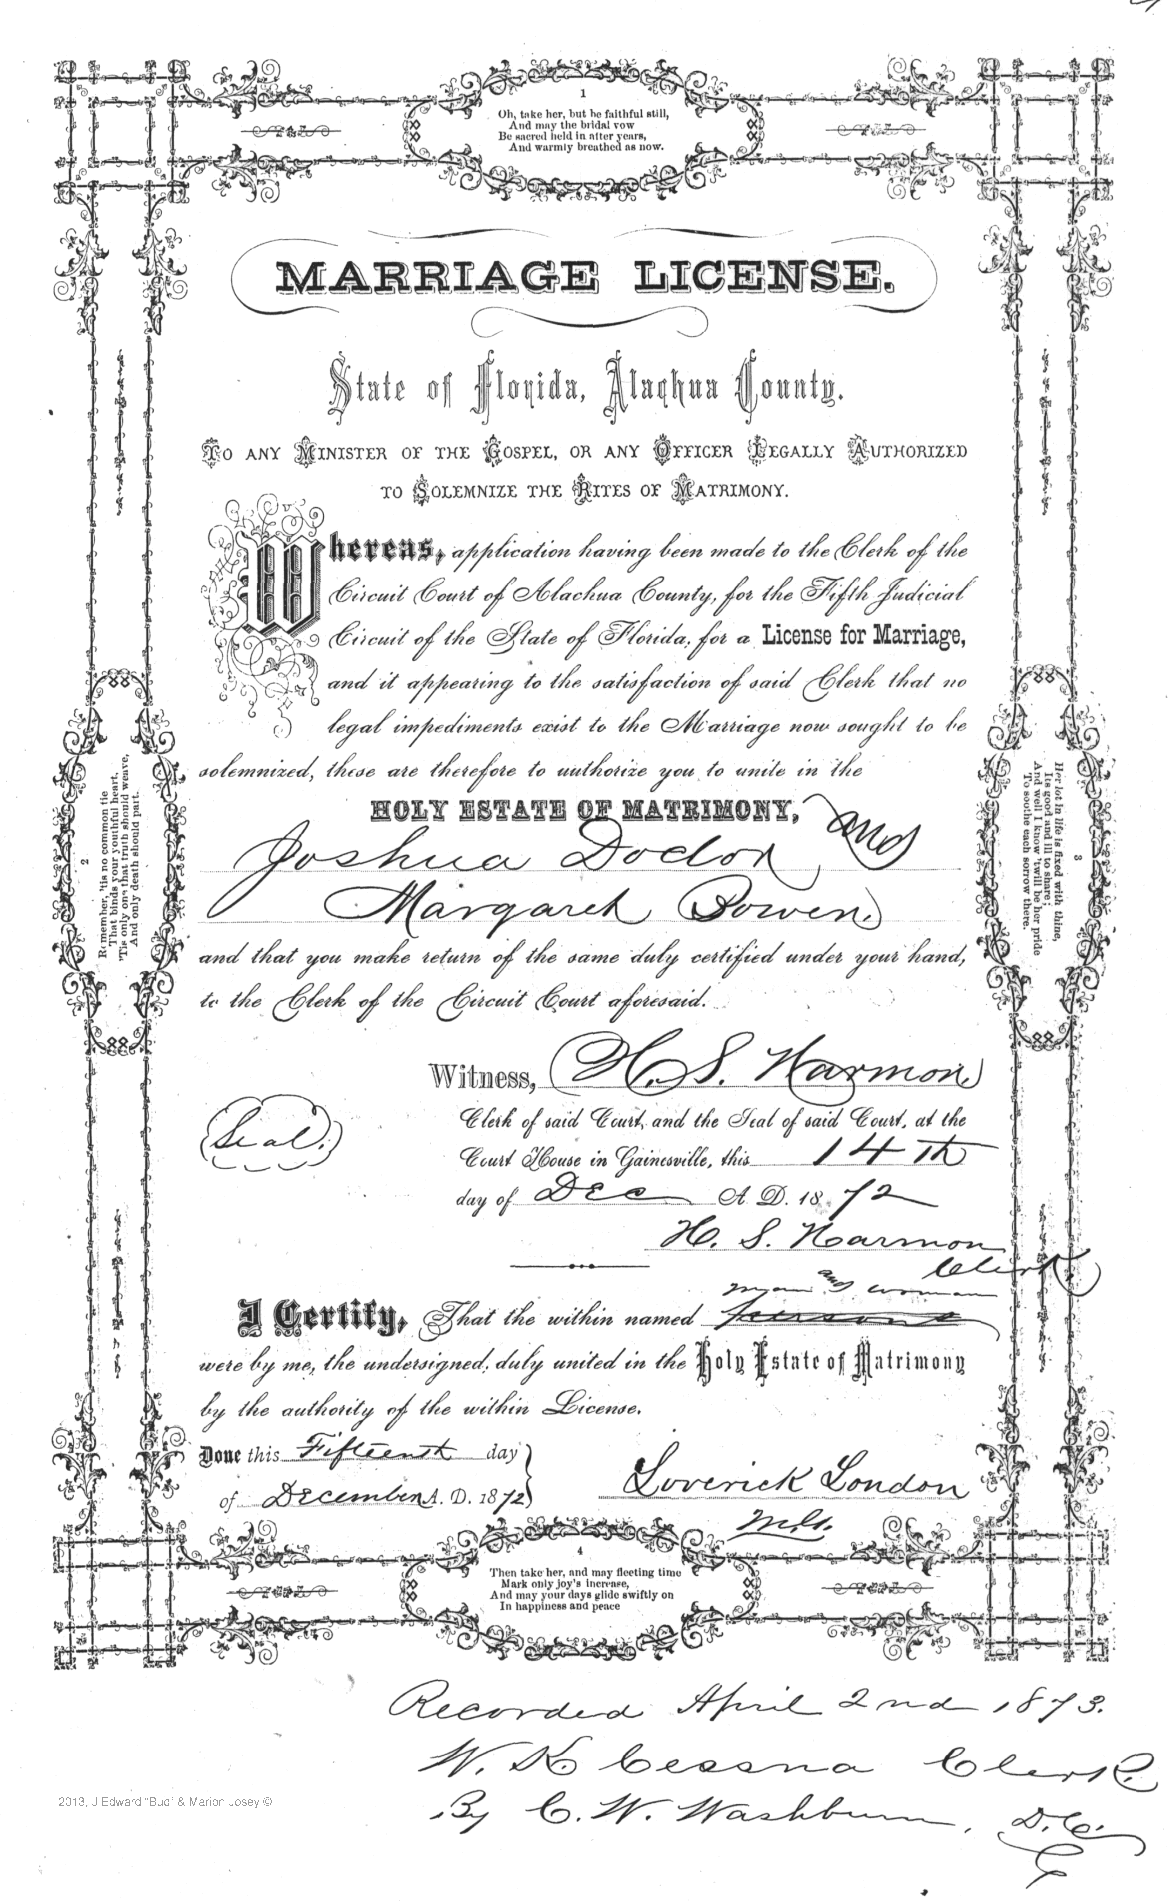 1
Oh, take her, but be faithful still,
And may the bridal vow
Be sacred held in after years,
And warmly breathed as now.
MARRIAGE LICENSE.
State of Florida, Alachua County.
To any Minister of the Gospel, or any Officer Legally Authorized
to Solemnize the Rites of Matrimony.
Whereas, application having been made to the Clerk of the
Circuit Court of Alachua County, for the Fifth Judicial
Circuit of the State of Florida, for a License for Marriage,
and it appearing to the satisfaction of said Clerk that no
legal impediments exist to the Marriage now sought to be
solemnized, these are therefore to authorize you to unite in the
HOLY ESTATE OF MATRIMONY,
Joshua Dodon and
Margaret Bowen.
and that you make return of the same duly certified under your hand,
to the Clerk of the Circuit Court aforesaid.
2
Remember, 'tis no common tie
That binds your youthful heart,
'Tis only one that truth should weave,
And only death should part.
3
Her lot in life is fixed with thine,
Its good and ill to share;
And well I know 'twill be her pride
To soothe each sorrow there.
Witness, H. S. Harmon
Seal.
Clerk of said Court, and the Seal of said Court, at the
Court House in Gainesville, this 14th
day of Dec A. D. 1872
H. S. Harmon
Clerk
man and woman
I Certify, That the within named persons
were by me, the undersigned, duly united in the Holy Estate of Matrimony
by the authority of the within License.
Done this Fifteenth day
of December A. D. 1872
Loverick London
M.G.
4
Then take her, and may fleeting time
Mark only joy's increase,
And may your days glide swiftly on
In happiness and peace
Recorded April 2nd 1873.
W. K Cessna Clerk.
By C. W. Washburn, D.C.
2013, J Edward "Bud" & Marion Josey ©